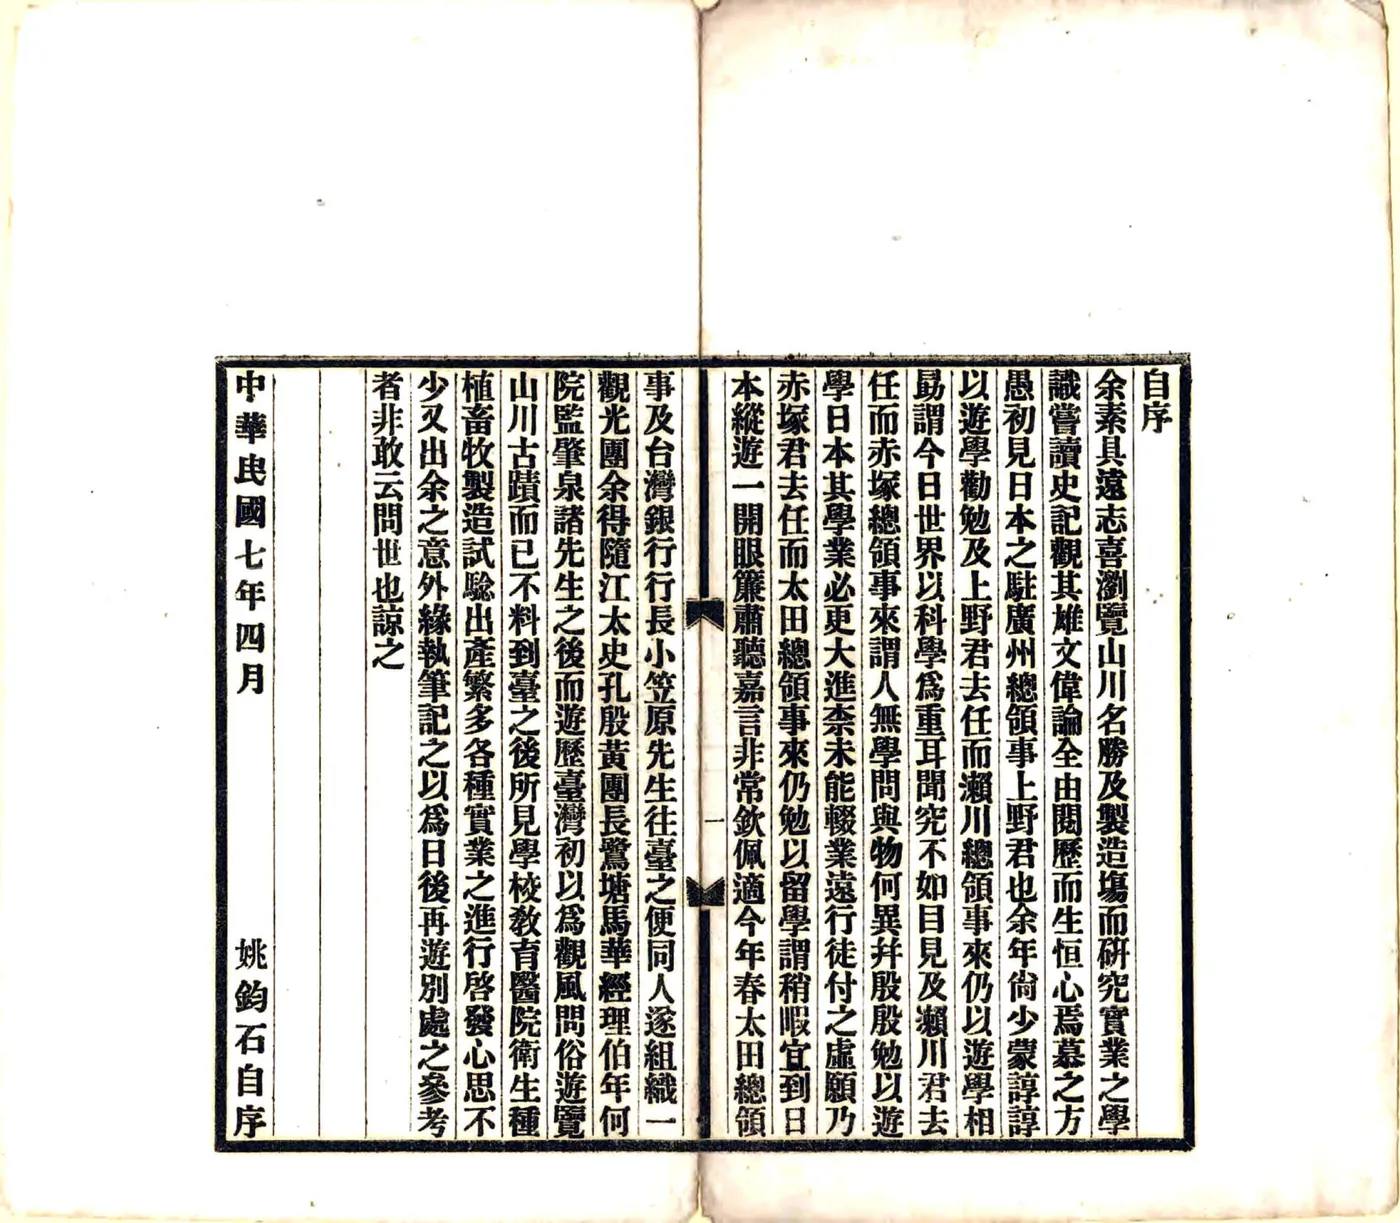 自序
余素具遠志喜瀏覽山川名勝及製造塲而硏究實業之學
識嘗讀史記觀其雄文偉論全由閱歷而生恒心焉慕之方
愚初見日本之駐廣州總領事上野君也余年尙少蒙諄諄
以遊學勸勉及上野君去任而瀨川總領事來仍以遊學相
勗謂今日世界以科學爲重耳聞究不如目見及瀨川君去
任而赤塚總領事來謂人無學問與物何異幷殷殷勉以遊
學日本其學業必更大進柰未能輟業遠行徒付之虛願乃
赤塚君去任而太田總領事來仍勉以留學謂稍暇宜到日
本縱遊一開眼簾肅聽嘉言非常欽佩適今年春太田總領
一
事及台灣銀行行長小笠原先生往臺之便同人遂組織一
觀光團余得隨江太史孔殷黃團長鷺塘馬華經理伯年何
院監肇泉諸先生之後而遊歷臺灣初以爲觀風問俗遊覽
山川古蹟而已不料到臺之後所見學校敎育醫院衛生種
植畜牧製造試騐出產繁多各種實業之進行啓發心思不
少又出余之意外緣執筆記之以爲日後再遊別處之參考
者非敢云問世也諒之
中華民國七年四月
姚鈞石自序